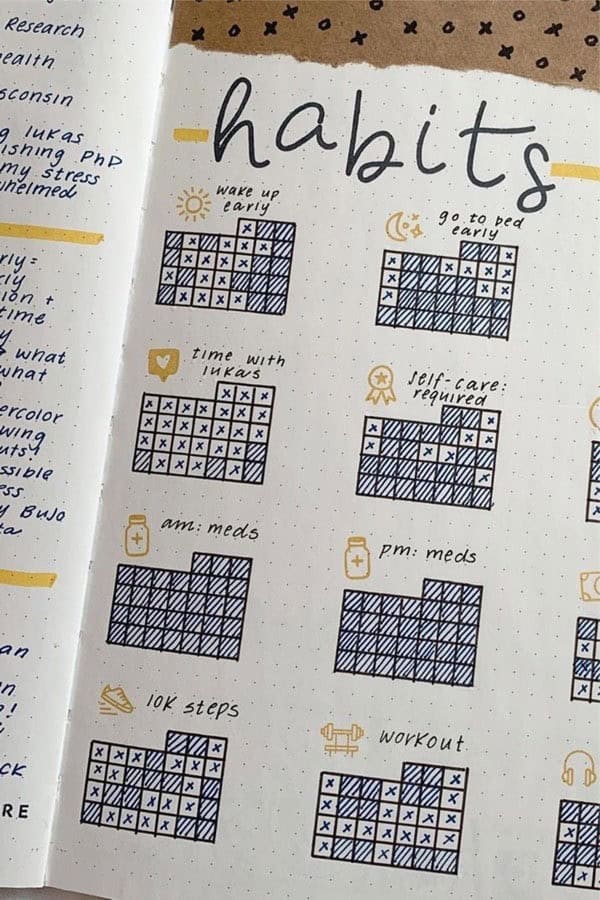 Research
ealth
sconsin
g lukas
ishing PhD
my stress
whelmed
rly=
rly
sion +
time
y
what
what
ercolor
wing
uts!
ssible
ess
y BuJo
ta
an
en
e!
ck
RE
habits
wake up
early
go to bed
early
time with
lukas
self-care:
required
am: meds
pm: meds
10K steps
workout